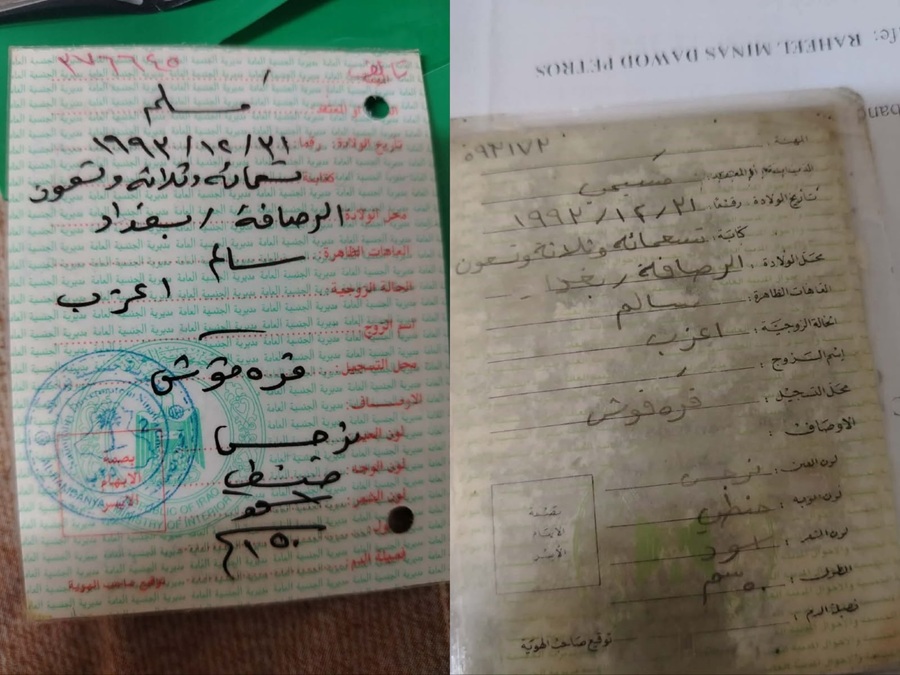 ٣٧٦٦٤٥
مسلم
تاريخ الولادة: رقماً: ١٩٩٣/١٢/٣١
كتابة: تسعمائه وثلاثه وتسعون
محل الولادة: الرصافة / بغداد
العاهات الظاهرة: سالم
الحالة الزوجية: اعزب
اسم الزوج:
محل التسجيل: قره قوش
الاوصاف:
لون العين: نرجسي
لون الوجه: حنطي
لون الشعر: اسود
١٥٠
فصيلة الدم:
بصمة
الابهام
الأيسر
توقيع صاحب الهوية
مديرية الجنسية العامة
wife: RAHEEL MINAS DAWOD PETROS
٥٩٣١٧٢
المهنة:
مسيحي
تأريخ الولادة: رقماً: ١٩٩٣/١٢/٣١
كتابة: تسعمائه وثلاثة وتسعون
محل الولادة: الرصافة / بغداد
العاهات الظاهرة: سالم
الحالة الزوجية: اعزب
إسم الزوج:
محل التسجيل: قره قوش
الأوصاف:
لون العين: نرجسي
لون الوجه: حنطي
لون الشعر: اسود
الطول: سم
فصيلة الدم:
بصمة
الابهام
الأيسر
توقيع صاحب الهوية